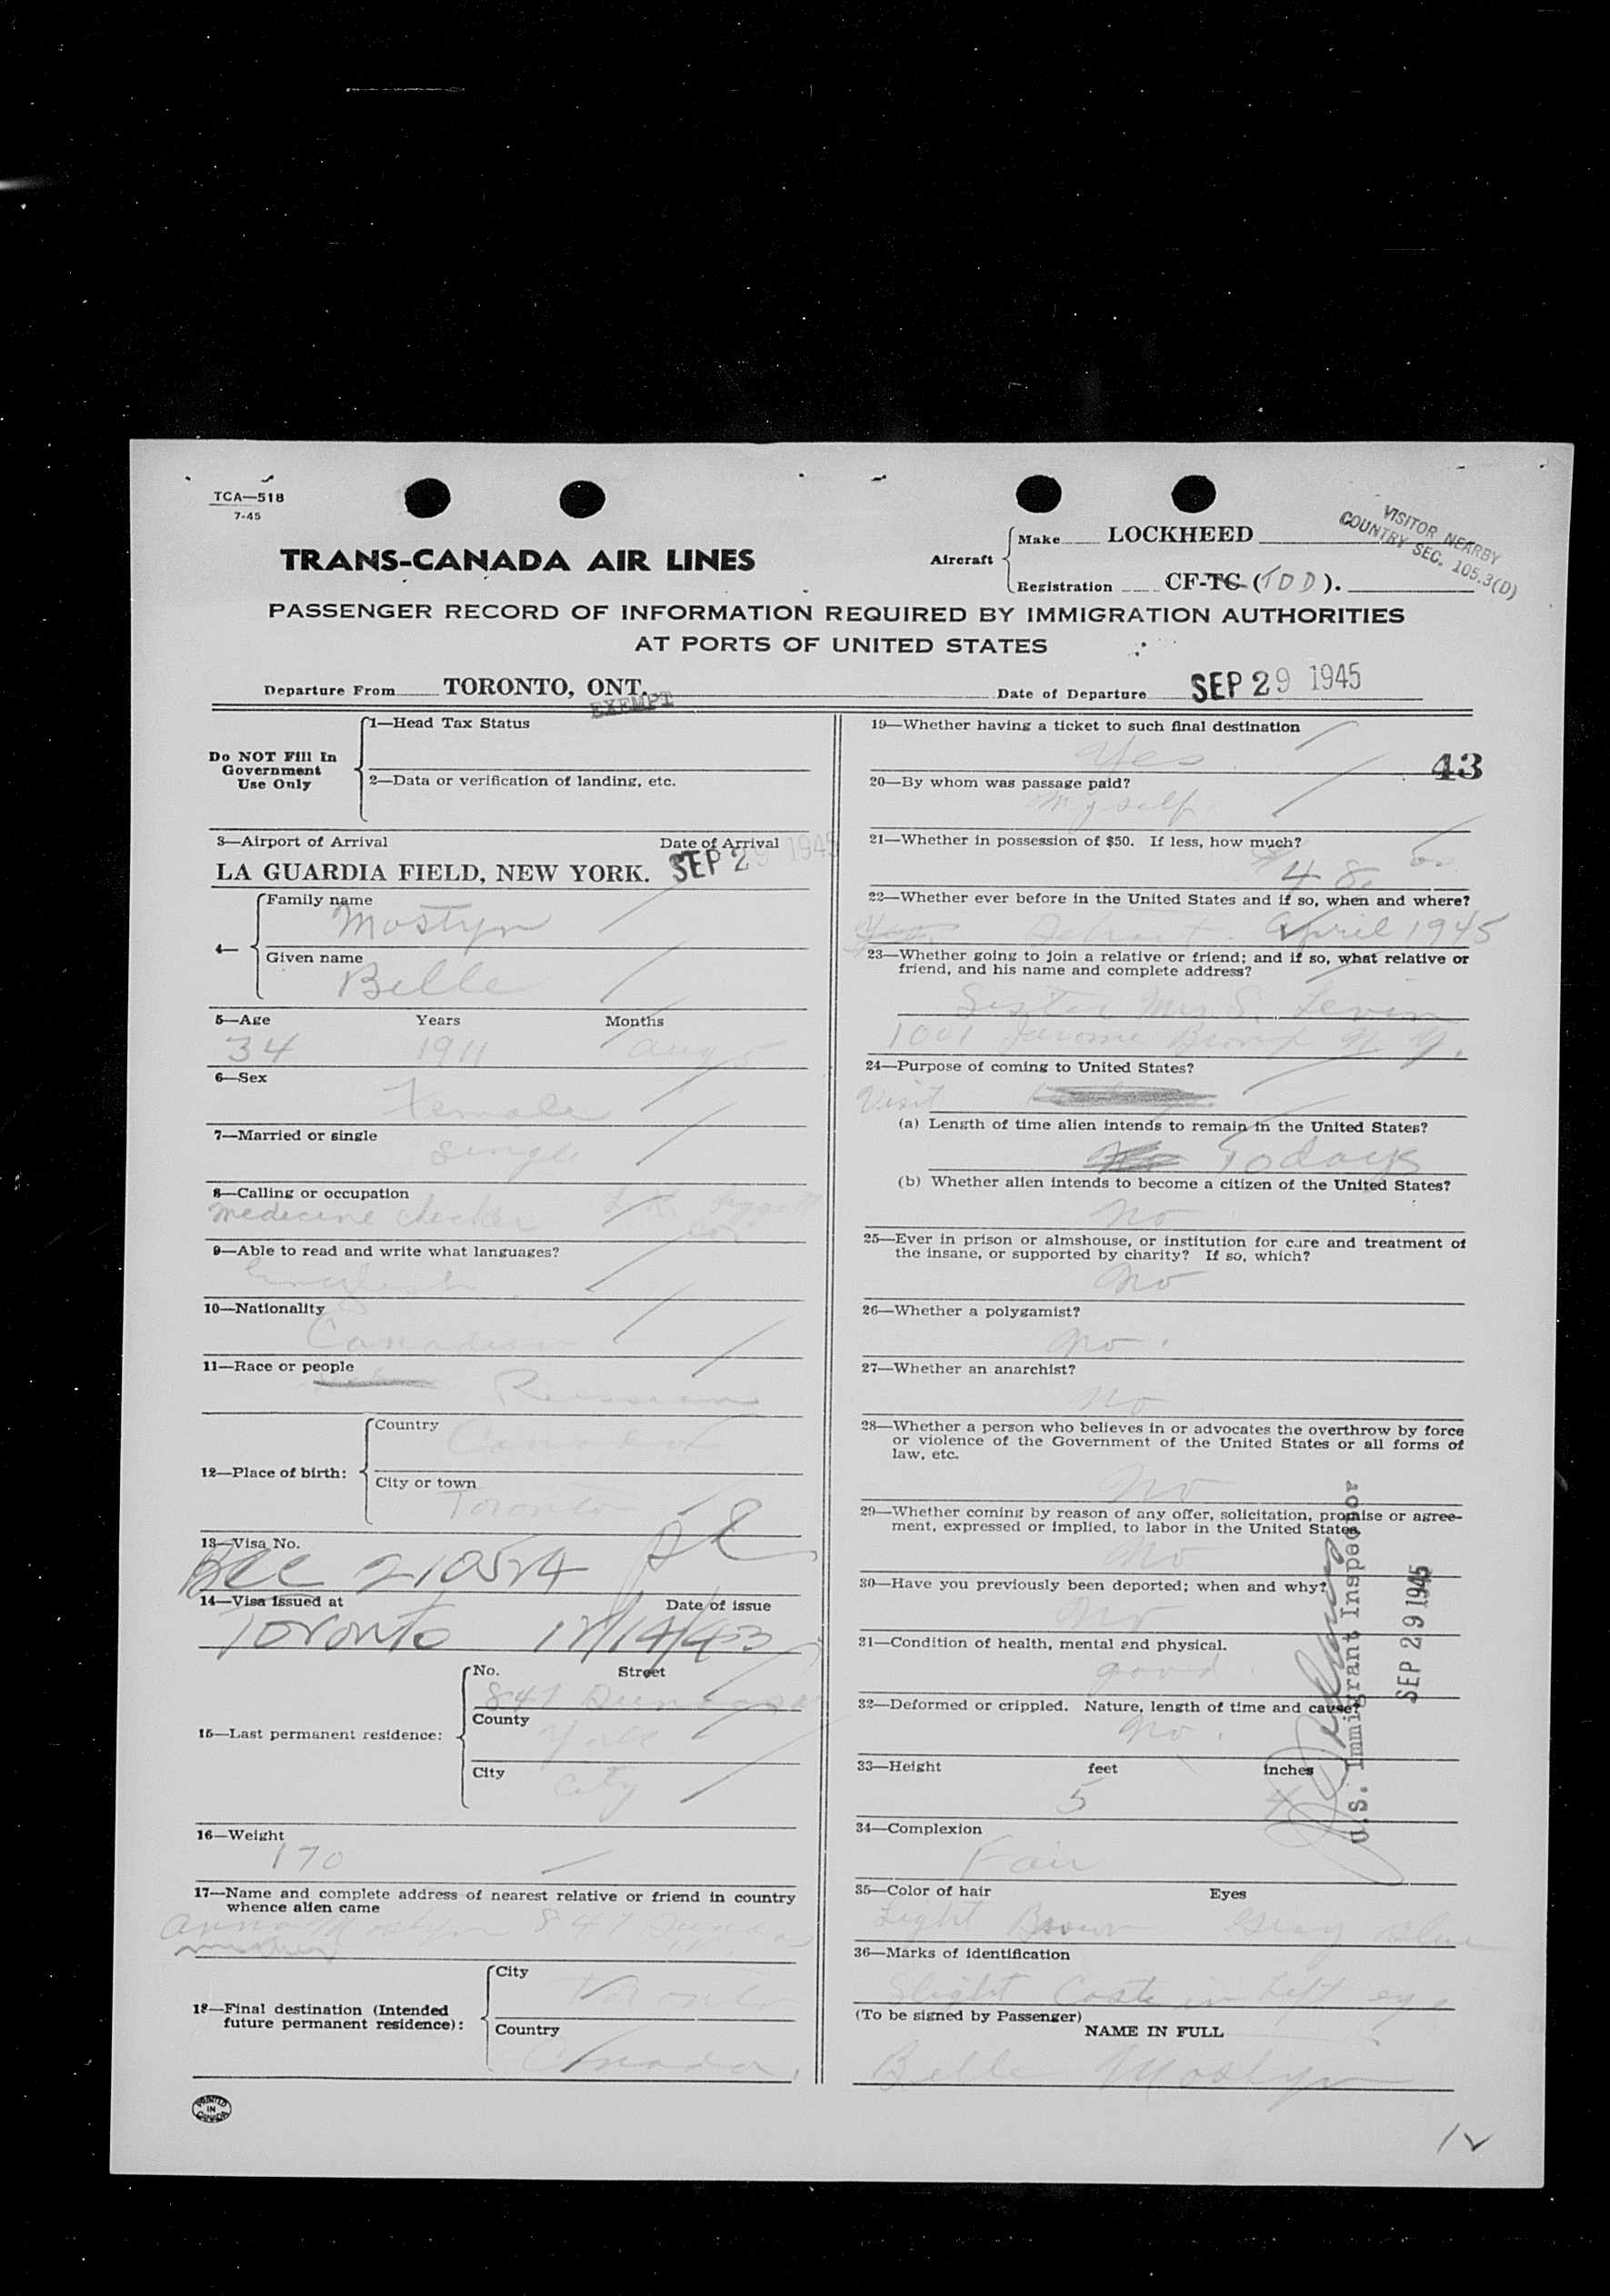 TCA—518
7-45
VISITOR NEARBY
COUNTRY SEC. 105.3(D)
TRANS-CANADA AIR LINES
Aircraft
Make LOCKHEED
Registration CF-TC (TDD).
PASSENGER RECORD OF INFORMATION REQUIRED BY IMMIGRATION AUTHORITIES
AT PORTS OF UNITED STATES
Departure From TORONTO, ONT.
EXEMPT
Date of Departure SEP 29 1945
Do NOT Fill In
Government
Use Only
1—Head Tax Status
2—Data or verification of landing, etc.
3—Airport of Arrival Date of Arrival
LA GUARDIA FIELD, NEW YORK. SEP 29 1945
4—
Family name
Mostyn
Given name
Belle
5—Age Years Months
34 1911 Aug 5
6—Sex
Female
7—Married or single
Single
8—Calling or occupation
medicine checker
9—Able to read and write what languages?
English
10—Nationality
Canadian
11—Race or people
Russian
12—Place of birth:
Country
Canada
City or town
Toronto
13—Visa No.
BCC 210524
14—Visa issued at Date of issue
Toronto 12/14/43
15—Last permanent residence:
No. Street
847 Dundas
County
York
City
City
16—Weight
170
17—Name and complete address of nearest relative or friend in country
whence alien came
Anna Mostyn 847 Dundas
mother
18—Final destination (Intended
future permanent residence):
City
Toronto
Country
Canada
PRINTED
IN
CANADA
19—Whether having a ticket to such final destination
Yes
43
20—By whom was passage paid?
Myself
21—Whether in possession of $50. If less, how much?
$48.00
22—Whether ever before in the United States and if so, when and where?
Yes. Detroit. April 1945
23—Whether going to join a relative or friend; and if so, what relative or
friend, and his name and complete address?
Sister Mrs. S. Levin
1001 Jerome Bronx N. Y.
24—Purpose of coming to United States?
Visit
(a) Length of time alien intends to remain in the United States?
10 days
(b) Whether alien intends to become a citizen of the United States?
no
25—Ever in prison or almshouse, or institution for care and treatment of
the insane, or supported by charity? If so, which?
no
26—Whether a polygamist?
no.
27—Whether an anarchist?
no
28—Whether a person who believes in or advocates the overthrow by force
or violence of the Government of the United States or all forms of
law, etc.
no
29—Whether coming by reason of any offer, solicitation, promise or agree-
ment, expressed or implied, to labor in the United States.
no
30—Have you previously been deported; when and why?
no
31—Condition of health, mental and physical.
good.
32—Deformed or crippled. Nature, length of time and cause?
no.
33—Height feet inches
5 4
34—Complexion
Fair
35—Color of hair Eyes
Light Brown Gray Blue
36—Marks of identification
Slight Caste in left eye
(To be signed by Passenger)
NAME IN FULL
Belle Mostyn
U.S. Immigrant Inspector
SEP 29 1945
12